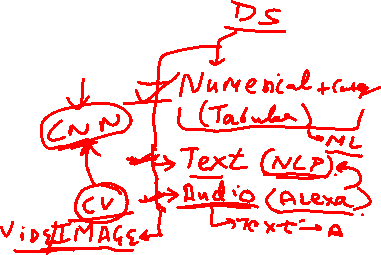 DS
Numerical + Cat
(Tabular)
ML
CNN
Text (NLP)
CV
Audio (Alexa)
Text → A
VIDE/IMAGE